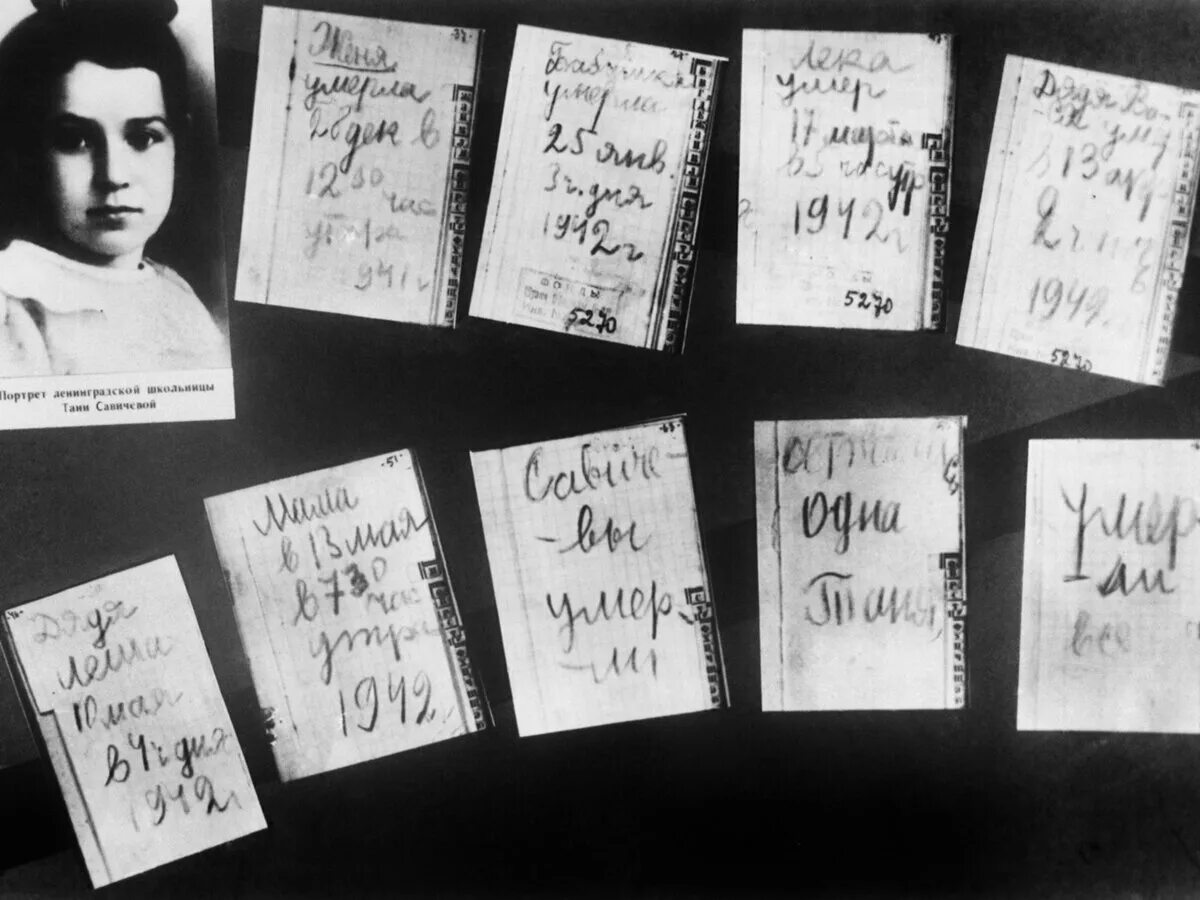 Портрет ленинградской школьницы
Тани Савичевой
Женя
умерла
28 дек в
12 30
час
утра
941 г
Бабушка
умерла
25 янв.
3 ч. дня
1942 г
фонды
5270
Лека
умер
17 марта
в 5 час утр
1942 г
5270
Дядя Ва-
2 ч ноч
1942 г
5270
Дядя
Леша
10 мая
в 4 ч дня
1942 г
Мама
в 13 мая
в 7 30
час
утра
1942
Савиче-
-вы
умер-
-ли
одна
Таня
умер
-ли
все